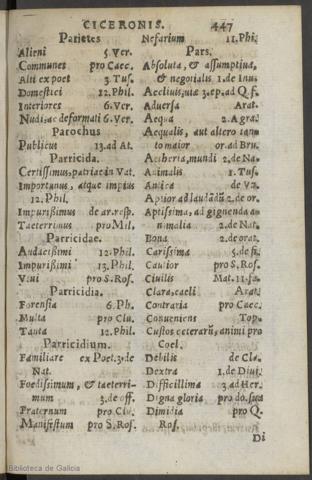 CICERONIS. 447
Parietes
Alieni 5 Ver.
Communes pro Caec.
Alti ex poet 3.Tus.
Domestici 12.Phil.
Interiores 6.Ver.
Nudi, ac deformati 6.Ver.
Parochus
Publicus 13.ad At.
Parricida.
Certissimus, patriae in Vat.
Importunus, atque impius
12.Phil.
Impurißimus de ar.resp.
Taeterrimus pro Mil.
Parricidae.
Audacißimi 12.Phil.
Impurißimi 13.Phil.
Viui pro S.Ros.
Parricidia.
Forensia 6.Ph.
Multa pro Clu.
Tanta 12.Phil.
Parricidium.
Familiare ex Poet.3.de
Nat.
Foedissimum, & taeterri-
mum 3.de off.
Fraternum pro Clu.
Manifestum pro S.Ros.
Nefarium 11.Phi.
Pars.
Absoluta, & assumptiua,
& negotialis 1.de Inu.
Accliuis, uiae 3.ep.ad Q.f.
Aduersa Arat.
Aequa 2.Agra.
Aequalis, aut altero tanto
maior or.ad Bru.
Aetheria, mundi 2.de Na.
Animalis 1.Tus.
Antica de Un.
Aptior ad laudādū 2.de or.
Aptissima, ad gignenda an
nimalia 2.de Nat.
Bona 2.de orat.
Carissima 5.de fi.
Cautior pro S.Ros.
Ciuilis Mat.11.fa.
Clara, caeli Arat.
Contraria pro Caec.
Conueniens Top.
Custos ceterarū, animi pro
Coel.
Debilis de Cla.
Dextra 1.de Diui.
Difficillima 3.ad Her.
Digna gloria pro do.sua
Dimidia pro Q.
Ros.
Di
Biblioteca de Galicia